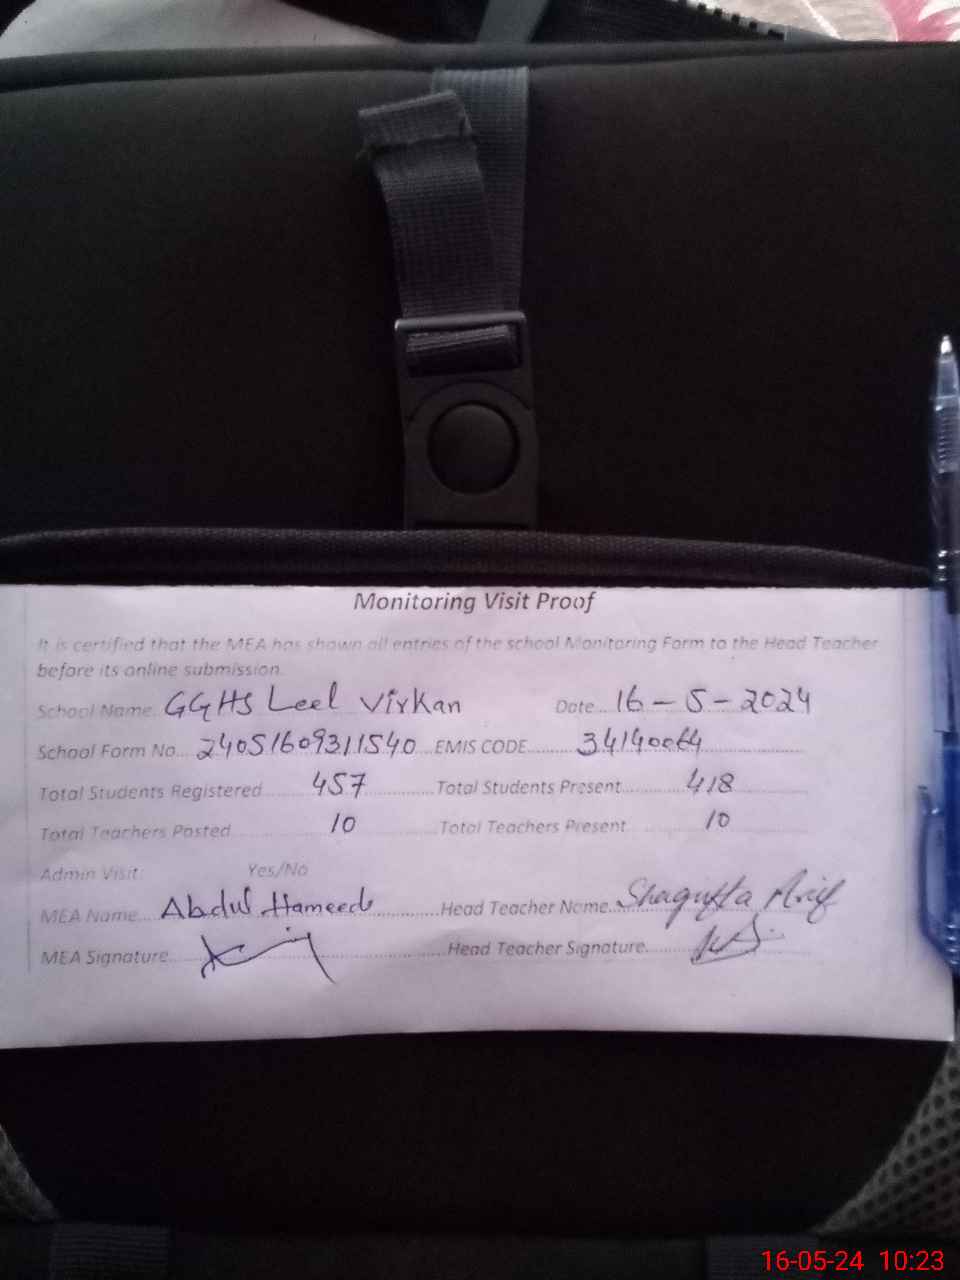 Monitoring Visit Proof
It is certified that the MEA has shown all entries of the school Monitoring Form to the Head Teacher
before its online submission.
School Name GGHS Leel Virkan Date 16-5-2024
School Form No 24051609311540 EMIS CODE 34140064
Total Students Registered 457 Total Students Present 418
Total Teachers Posted 10 Total Teachers Present 10
Admin Visit: Yes/No
MEA Name Abdul Hameed Head Teacher Name Shagufta
MEA Signature Head Teacher Signature
16-05-24 10:23